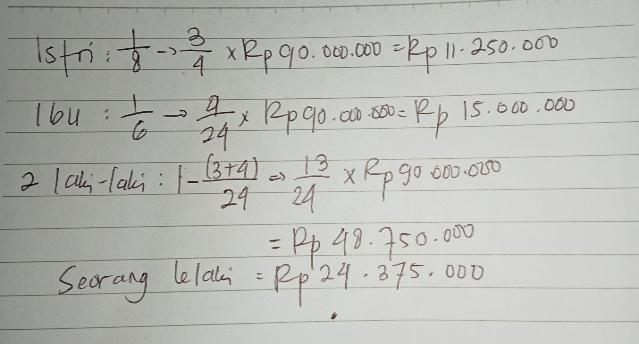 Istri : 1/8 → 3/4 x Rp 90.000.000 = Rp 11.250.000
Ibu : 1/6 → 4/24 x Rp 90.000.000 = Rp 15.000.000
2 laki-laki : 1 - (3+4)/24 ⇒ 13/24 x Rp 90.000.000
= Rp 48.750.000
Seorang lelaki = Rp 24.375.000